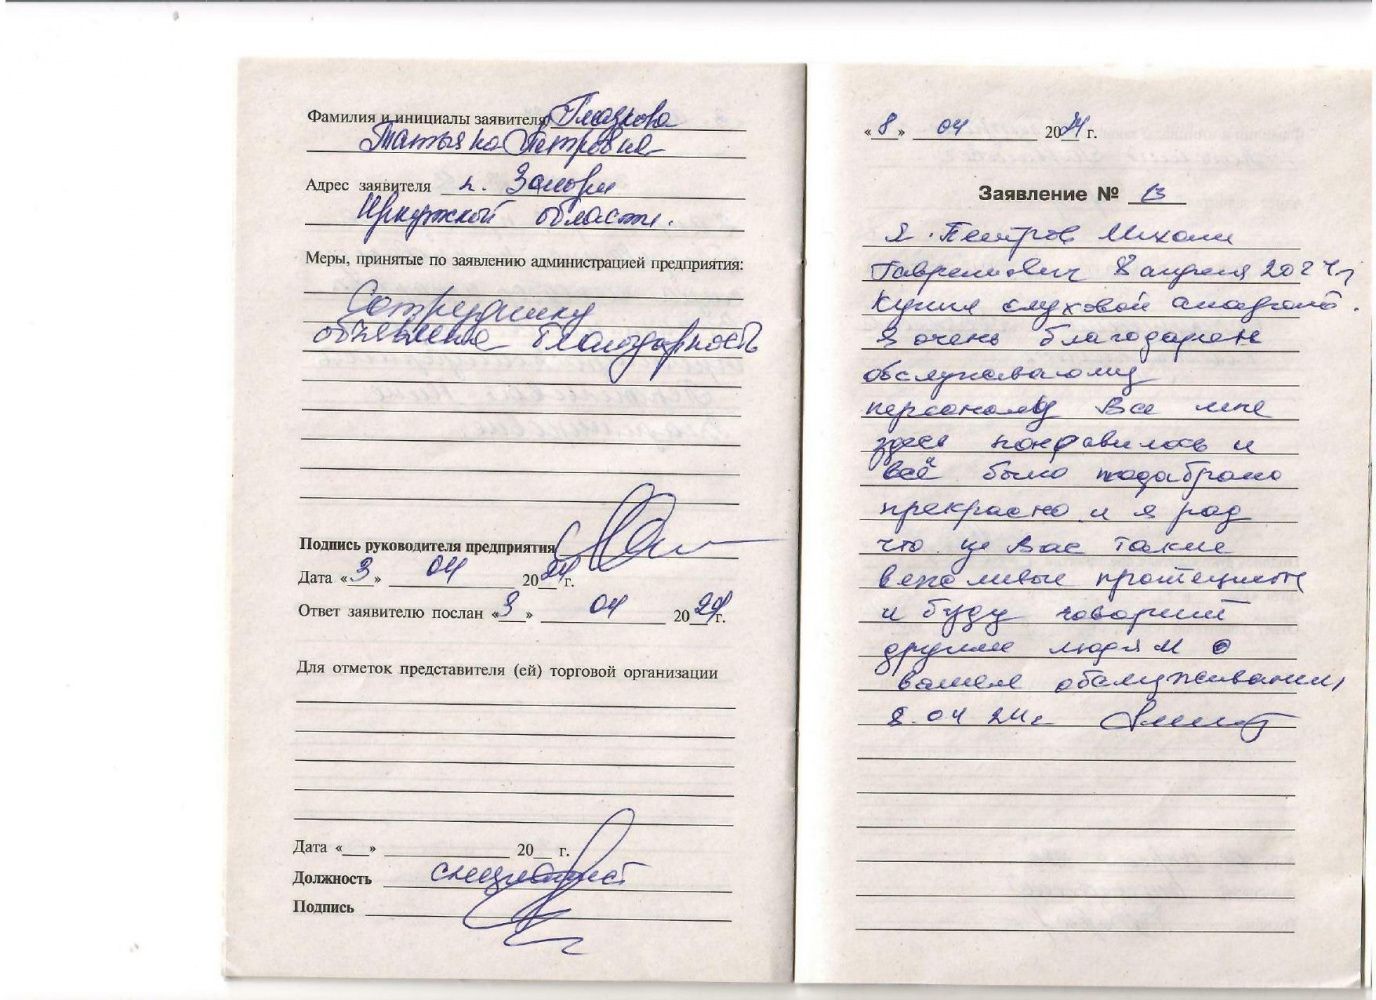 Фамилия и инициалы заявителя Глазкова
Татьяна Петровна
Адрес заявителя п. Залари
Иркутской области.
Меры, принятые по заявлению администрацией предприятия:
Сотруднику
объявлена благодарность
Подпись руководителя предприятия
Дата «3» 04 2024г.
Ответ заявителю послан «3» 04 2024г.
Для отметок представителя (ей) торговой организации
Дата «___» ____________ 20__ г.
Должность специалист
Подпись
«8» 04 2024г.
Заявление №
Я. Петров Михаил
Гаврилович 8 апреля 2024г
купил слуховой аппарат.
Я очень благодарен
обслуживаюму
персоналу Все мне
здесь понравилось и
всё было подабрано
прекрасно и я рад
что у Вас такие
вежливые
и буду говорит
другим людям о
вашем обслуживании,
8.04 24г